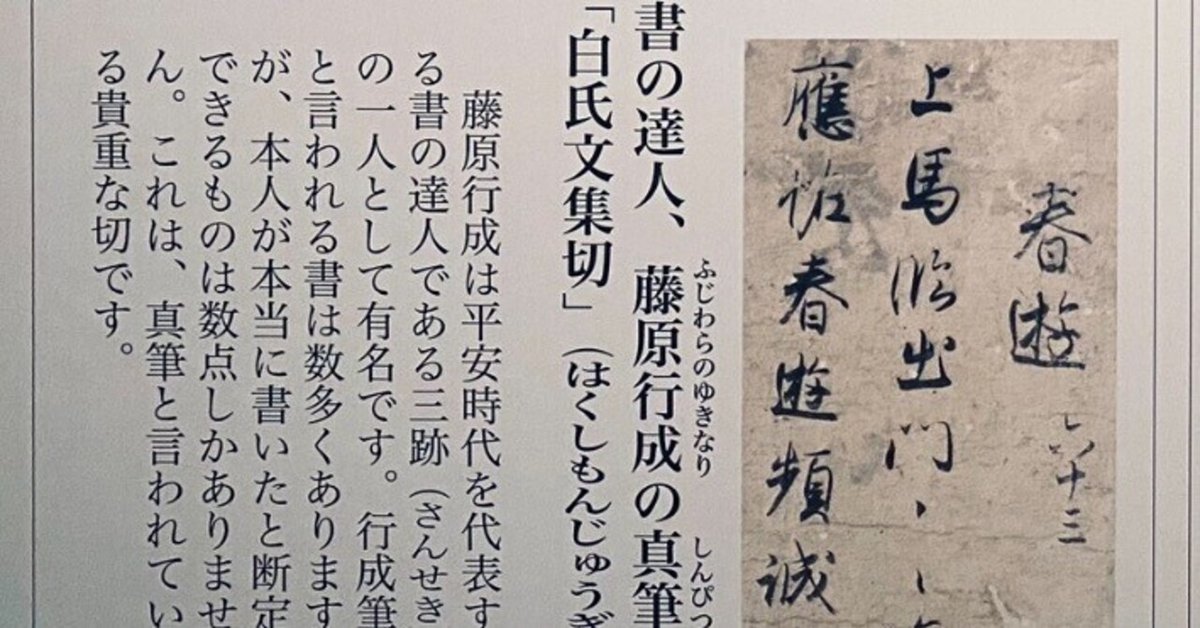 春遊 六十三
上馬臨出門
應恠春遊頻誠
ふじわらのゆきなり しんぴつ
書の達人、藤原行成の真筆
「白氏文集切」(はくしもんじゅうぎ
藤原行成は平安時代を代表す
る書の達人である三跡(さんせき
の一人として有名です。行成筆
と言われる書は数多くあります
が、本人が本当に書いたと断定
できるものは数点しかありませ
ん。これは、真筆と言われてい
る貴重な切です。